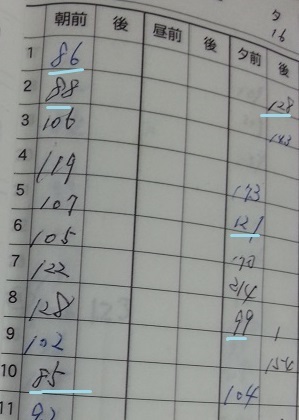 夕
朝前 後 昼前 後 夕前 後 16
1 86
2 88 128
3 106 143
4 119
5 107 173
6 105 121
7 122 170
8 128 214
9 102 99
10 85 154
11 92 104